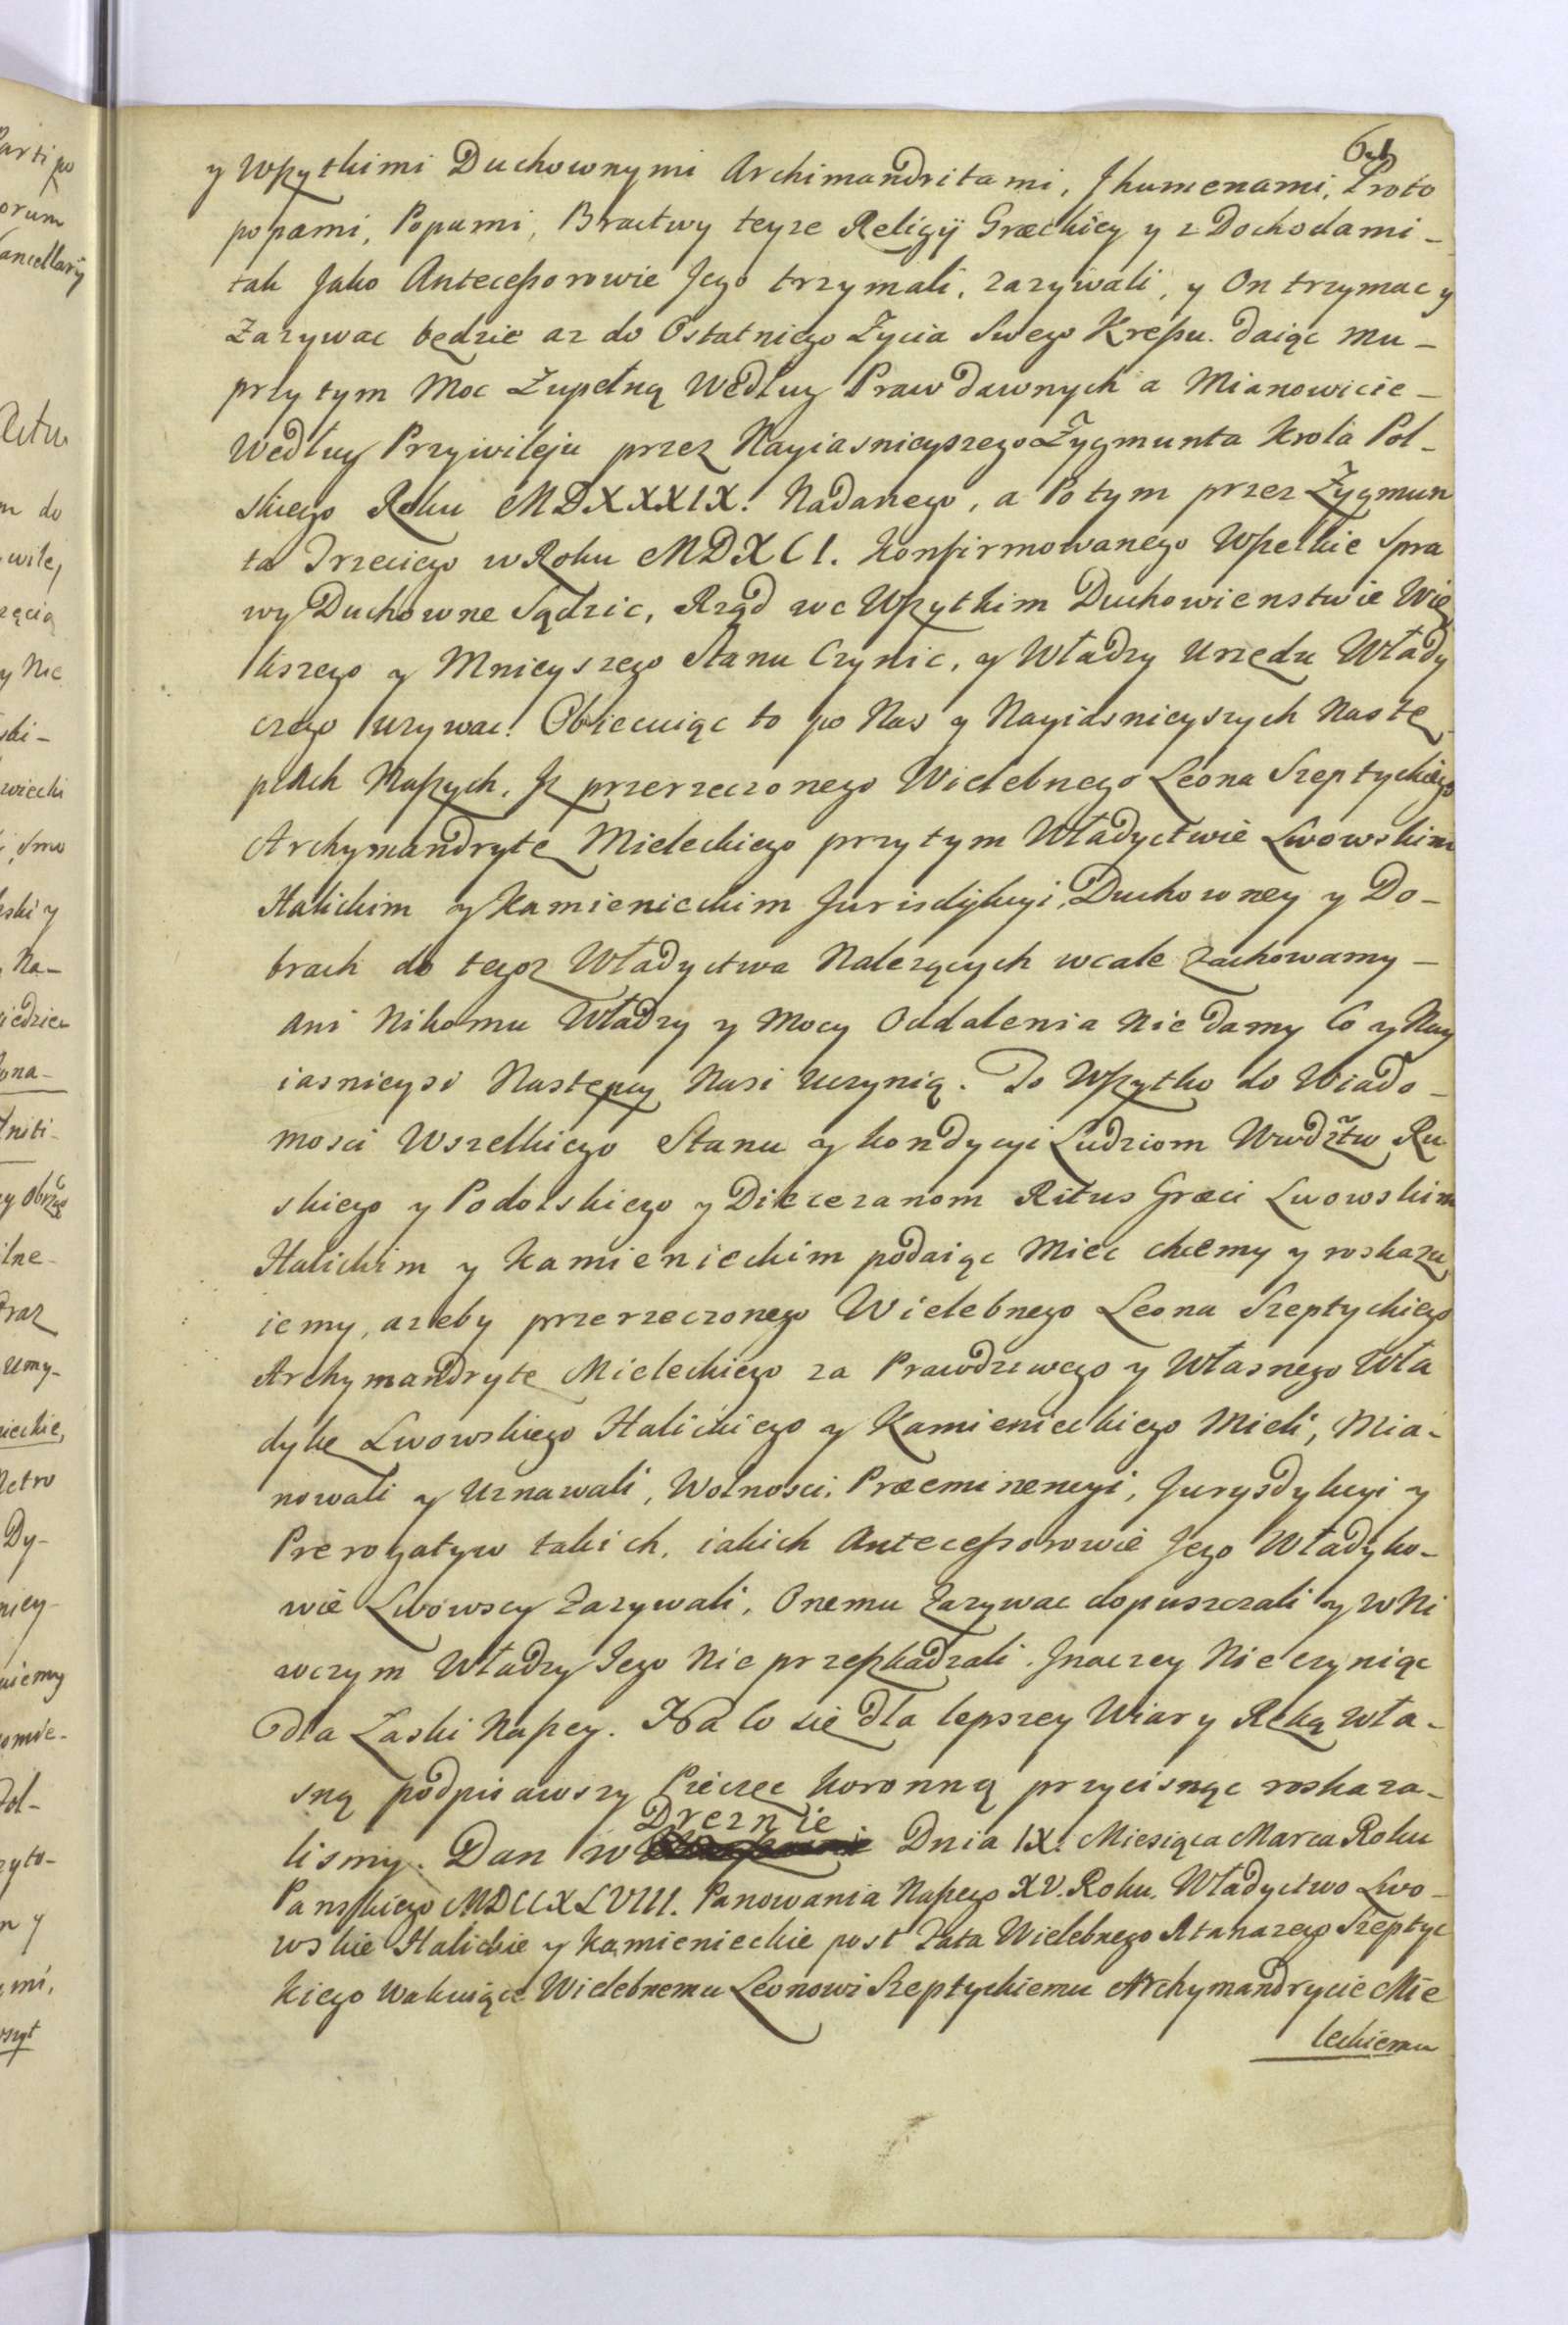 y Wszytkimi Duchownymi Archimandritami, Jhumenami, Proto
popami, Popami, Bractwy teyze Religij Græckiey y z Dochodami –
tak Jako Antecessorowie Jego trzymali, zazywali, y On trzymac y
Zazywac będzie az do Ostatniego Zycia Swego Kresu. daiąc mu –
przytym Moc Zupełną Według Praw dawnych a Mianowicie –
Według Przywileju przez Nayiasnieyszego Zygmunta Krola Pol –
skiego Roku MDXXXIX. Nadanego, a Potym przez Zygmun
ta Trzeciego w Roku MDXCI. Konfirmowanego Wszelkie Spra
wy Duchowne Sądzic, Rząd we Wszytkim Duchowienstwie Wię
kszego y Mnieyszego Stanu Czynic, y Władzy Urzędu Włady
czego uzywac. Obiecuiąc to po Nas y Nayiasnieyszych Nastę
pcach Naszych, Jz przerzeczonego Wielebnego Leona Szeptyckiego
Archymandrytę Mieleckiego przytym Władyctwie Lwowskim
Halickim y Kamienieckim Jurisdykcyi Duchowney y Do –
brach do tegoz Władyctwa Nalezących wcale zachowamy –
ani Nikomu Władzy y Mocy Oddalenia Nie damy Co y Nay
iasnieysi Następcy Nasi uczynią. To Wszytko do Wiado –
mosci Wszelkiego Stanu y kondycyi Ludziom Wwdztw Ru
skiego y Podolskiego y Diecezanom Ritus Græci Lwowskim
Halickim y Kamienieckim podaiąc Miec chcemy y roskazu
iemy, azeby przerzeczonego Wielebnego Leona Szeptyckiego
Archymandrytę Mieleckiego za Prawdziwego y Własnego Wła
dykę Lwowskiego Halickiego y Kamienieckiego Mieli, Mia –
nowali y Uznawali, Wolnosci, Præeminencyi, Jurysdykcyi y
Prerogatyw takich, iakich Antecessorowie Jego Władyko –
wie Lwowscy Zazywali, Onemu Zazywac dopuszczali y w Ni
wczym Władzy Jego Nie przeszkadzali. Jnaczey Nie czyniąc
dla Łaski Naszey. Na co się dla lepszey Wiary Ręką wła –
sną podpisawszy Pieczęc Koronną przycisnąc roskaza –
lismy. Dan w Dreznie Dnia IX. Miesiąca Marca Roku
Panskiego MDCCXLVIII. Panowania Naszego XV. Roku. Władyctwo Lwo –
wskie Halickie y Kamienieckie post Fata Wielebnego Atanazego Szeptyc
kiego Wakuiące Wielebnemu Leonowi Szeptyckiemu Archymandrycie Mie
leckiemu